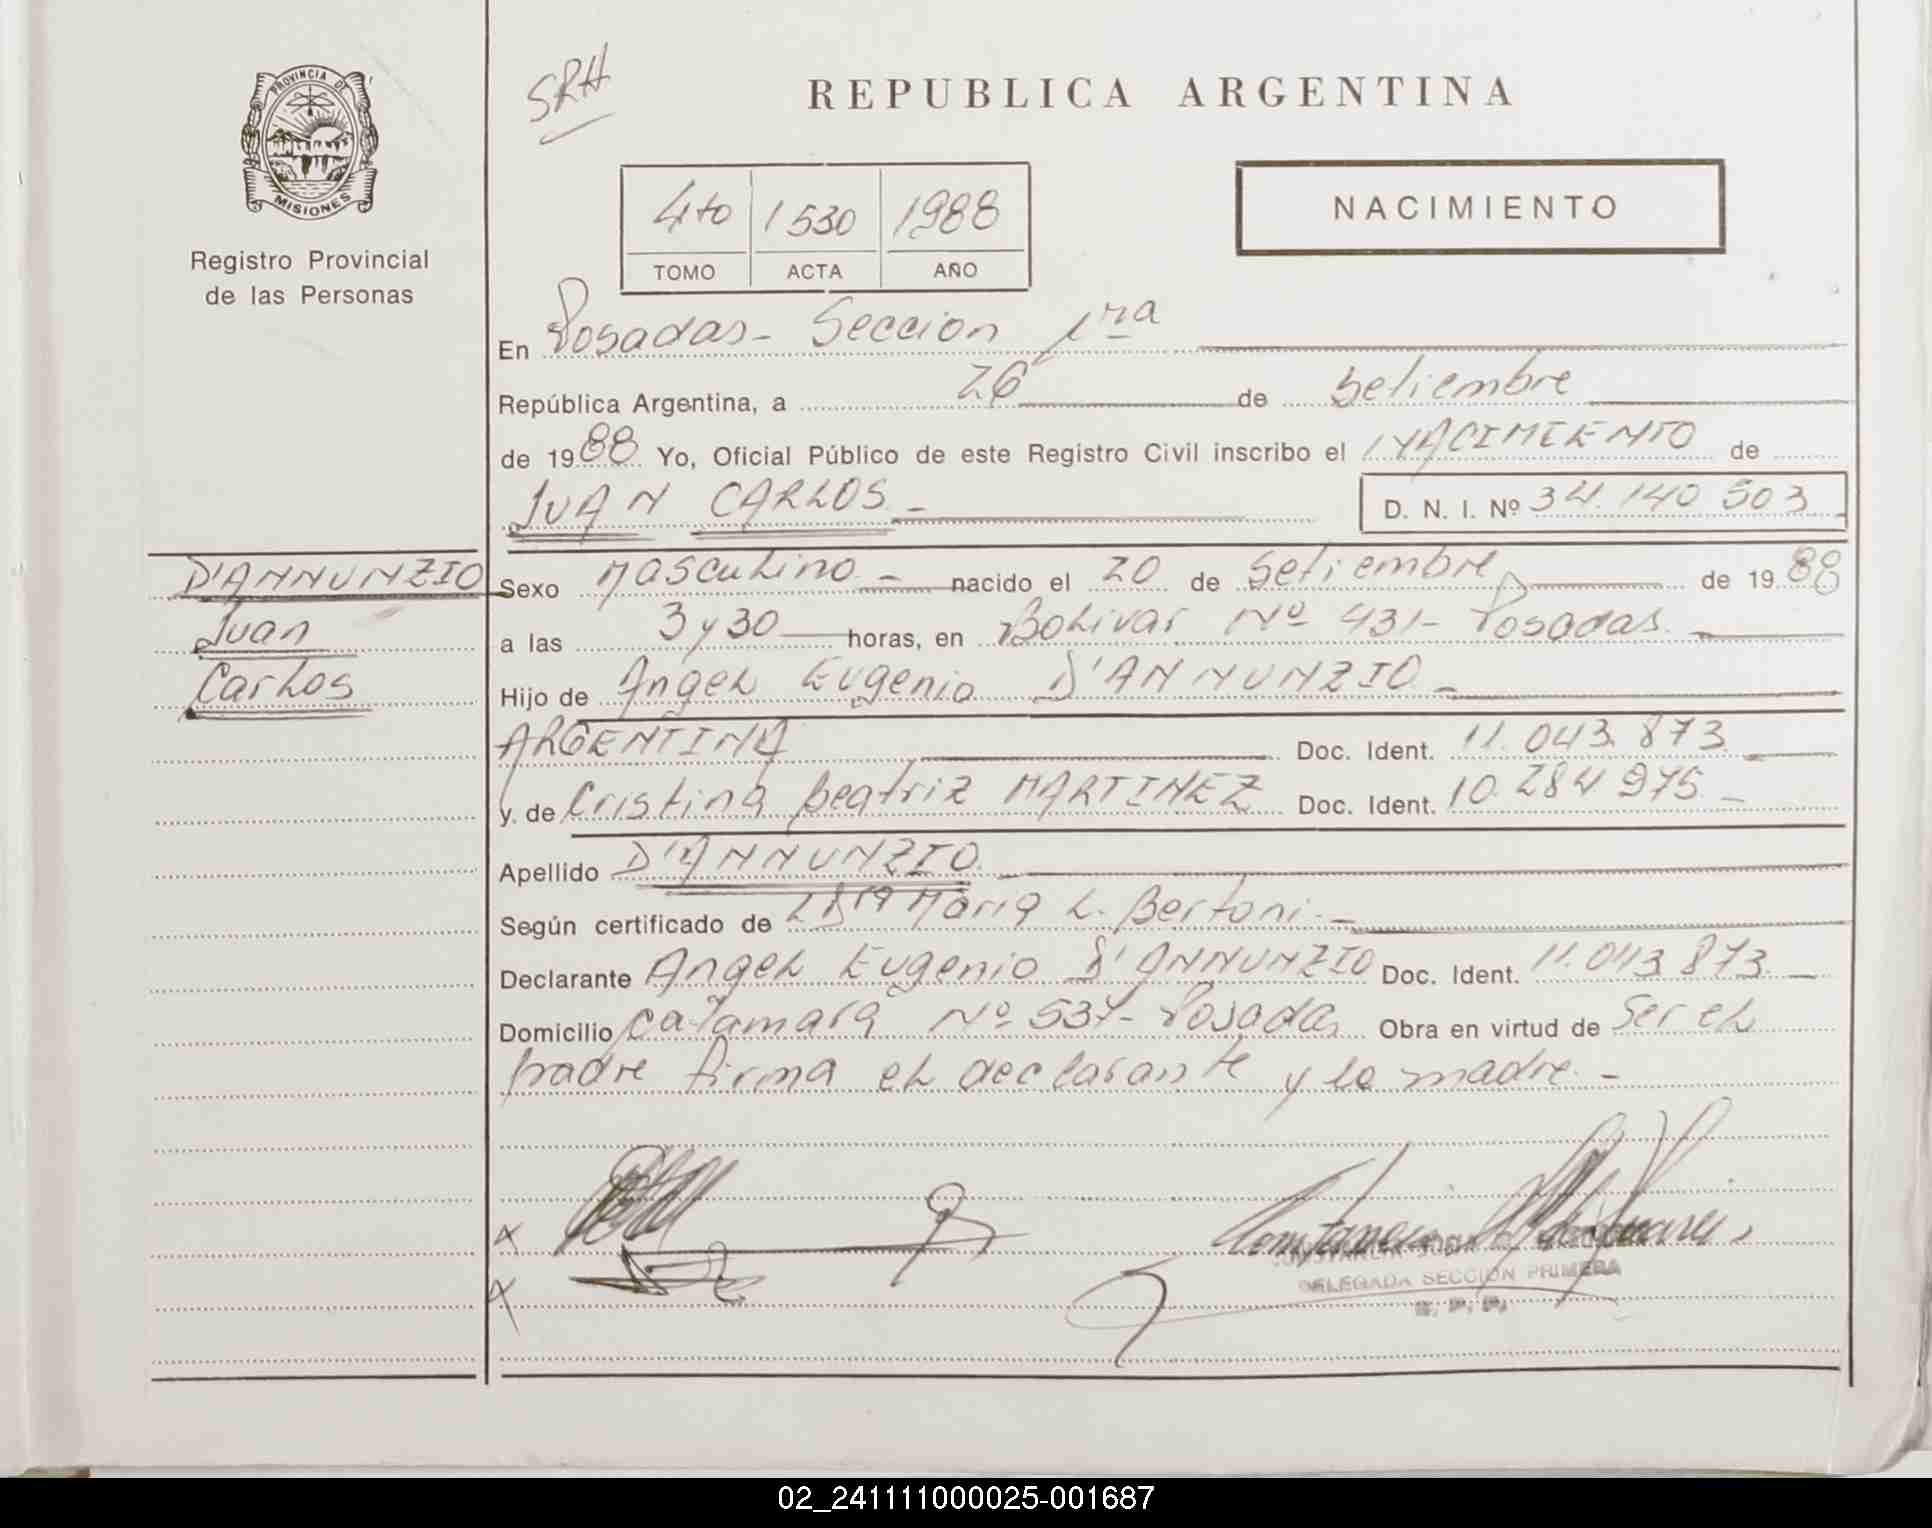 PROVINCIA DE
MISIONES
Registro Provincial
de las Personas
SRH
REPUBLICA ARGENTINA
4to 1530 1988
TOMO ACTA AÑO
NACIMIENTO
En Posadas - Seccion 1ra
República Argentina, a 26 de Setiembre
de 1988 Yo, Oficial Público de este Registro Civil inscribo el NACIMIENTO de
JUAN CARLOS.-
D. N. I. Nº 34.140 503
D'ANNUNZIO
Juan
Carlos
Sexo Masculino - nacido el 20 de Setiembre de 1988
a las 3 y 30 horas, en Bolivar Nº 431- Posadas.
Hijo de Angel Eugenio D'ANNUNZIO -
ARGENTINA Doc. Ident. 11.043.873
y de Cristina Beatriz MARTINEZ Doc. Ident. 10.284 975 -
Apellido D'ANNUNZIO.
Según certificado de Maria L. Bertoni.-
Declarante Angel Eugenio D'ANNUNZIO Doc. Ident. 11.043 873.
Domicilio Catamara Nº 537- Posadas Obra en virtud de Ser el
padre firma el declarante y la madre.-
x
x
DELEGADA SECCION PRIMERA
02_241111000025-001687